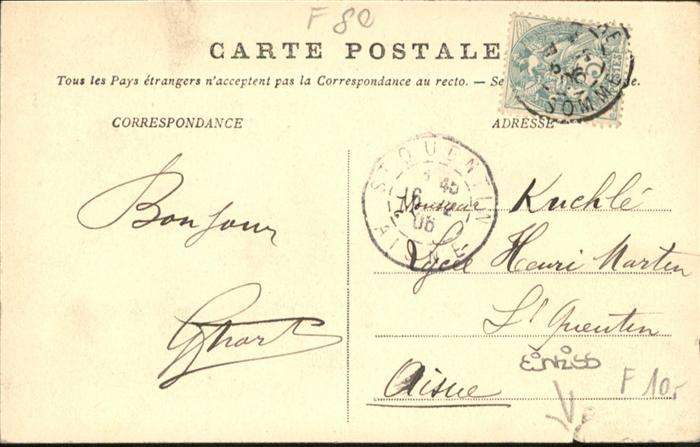 F 80
CARTE POSTALE
Tous les Pays étrangers n'acceptent pas la Correspondance au recto. — Se
CORRESPONDANCE
ADRESSE
SOMME
ST QUENTIN
AISNE
Bonjour
Monsieur Kuchlé
Lycée Henri Martin
St Quentin
Aisne
F 10,-